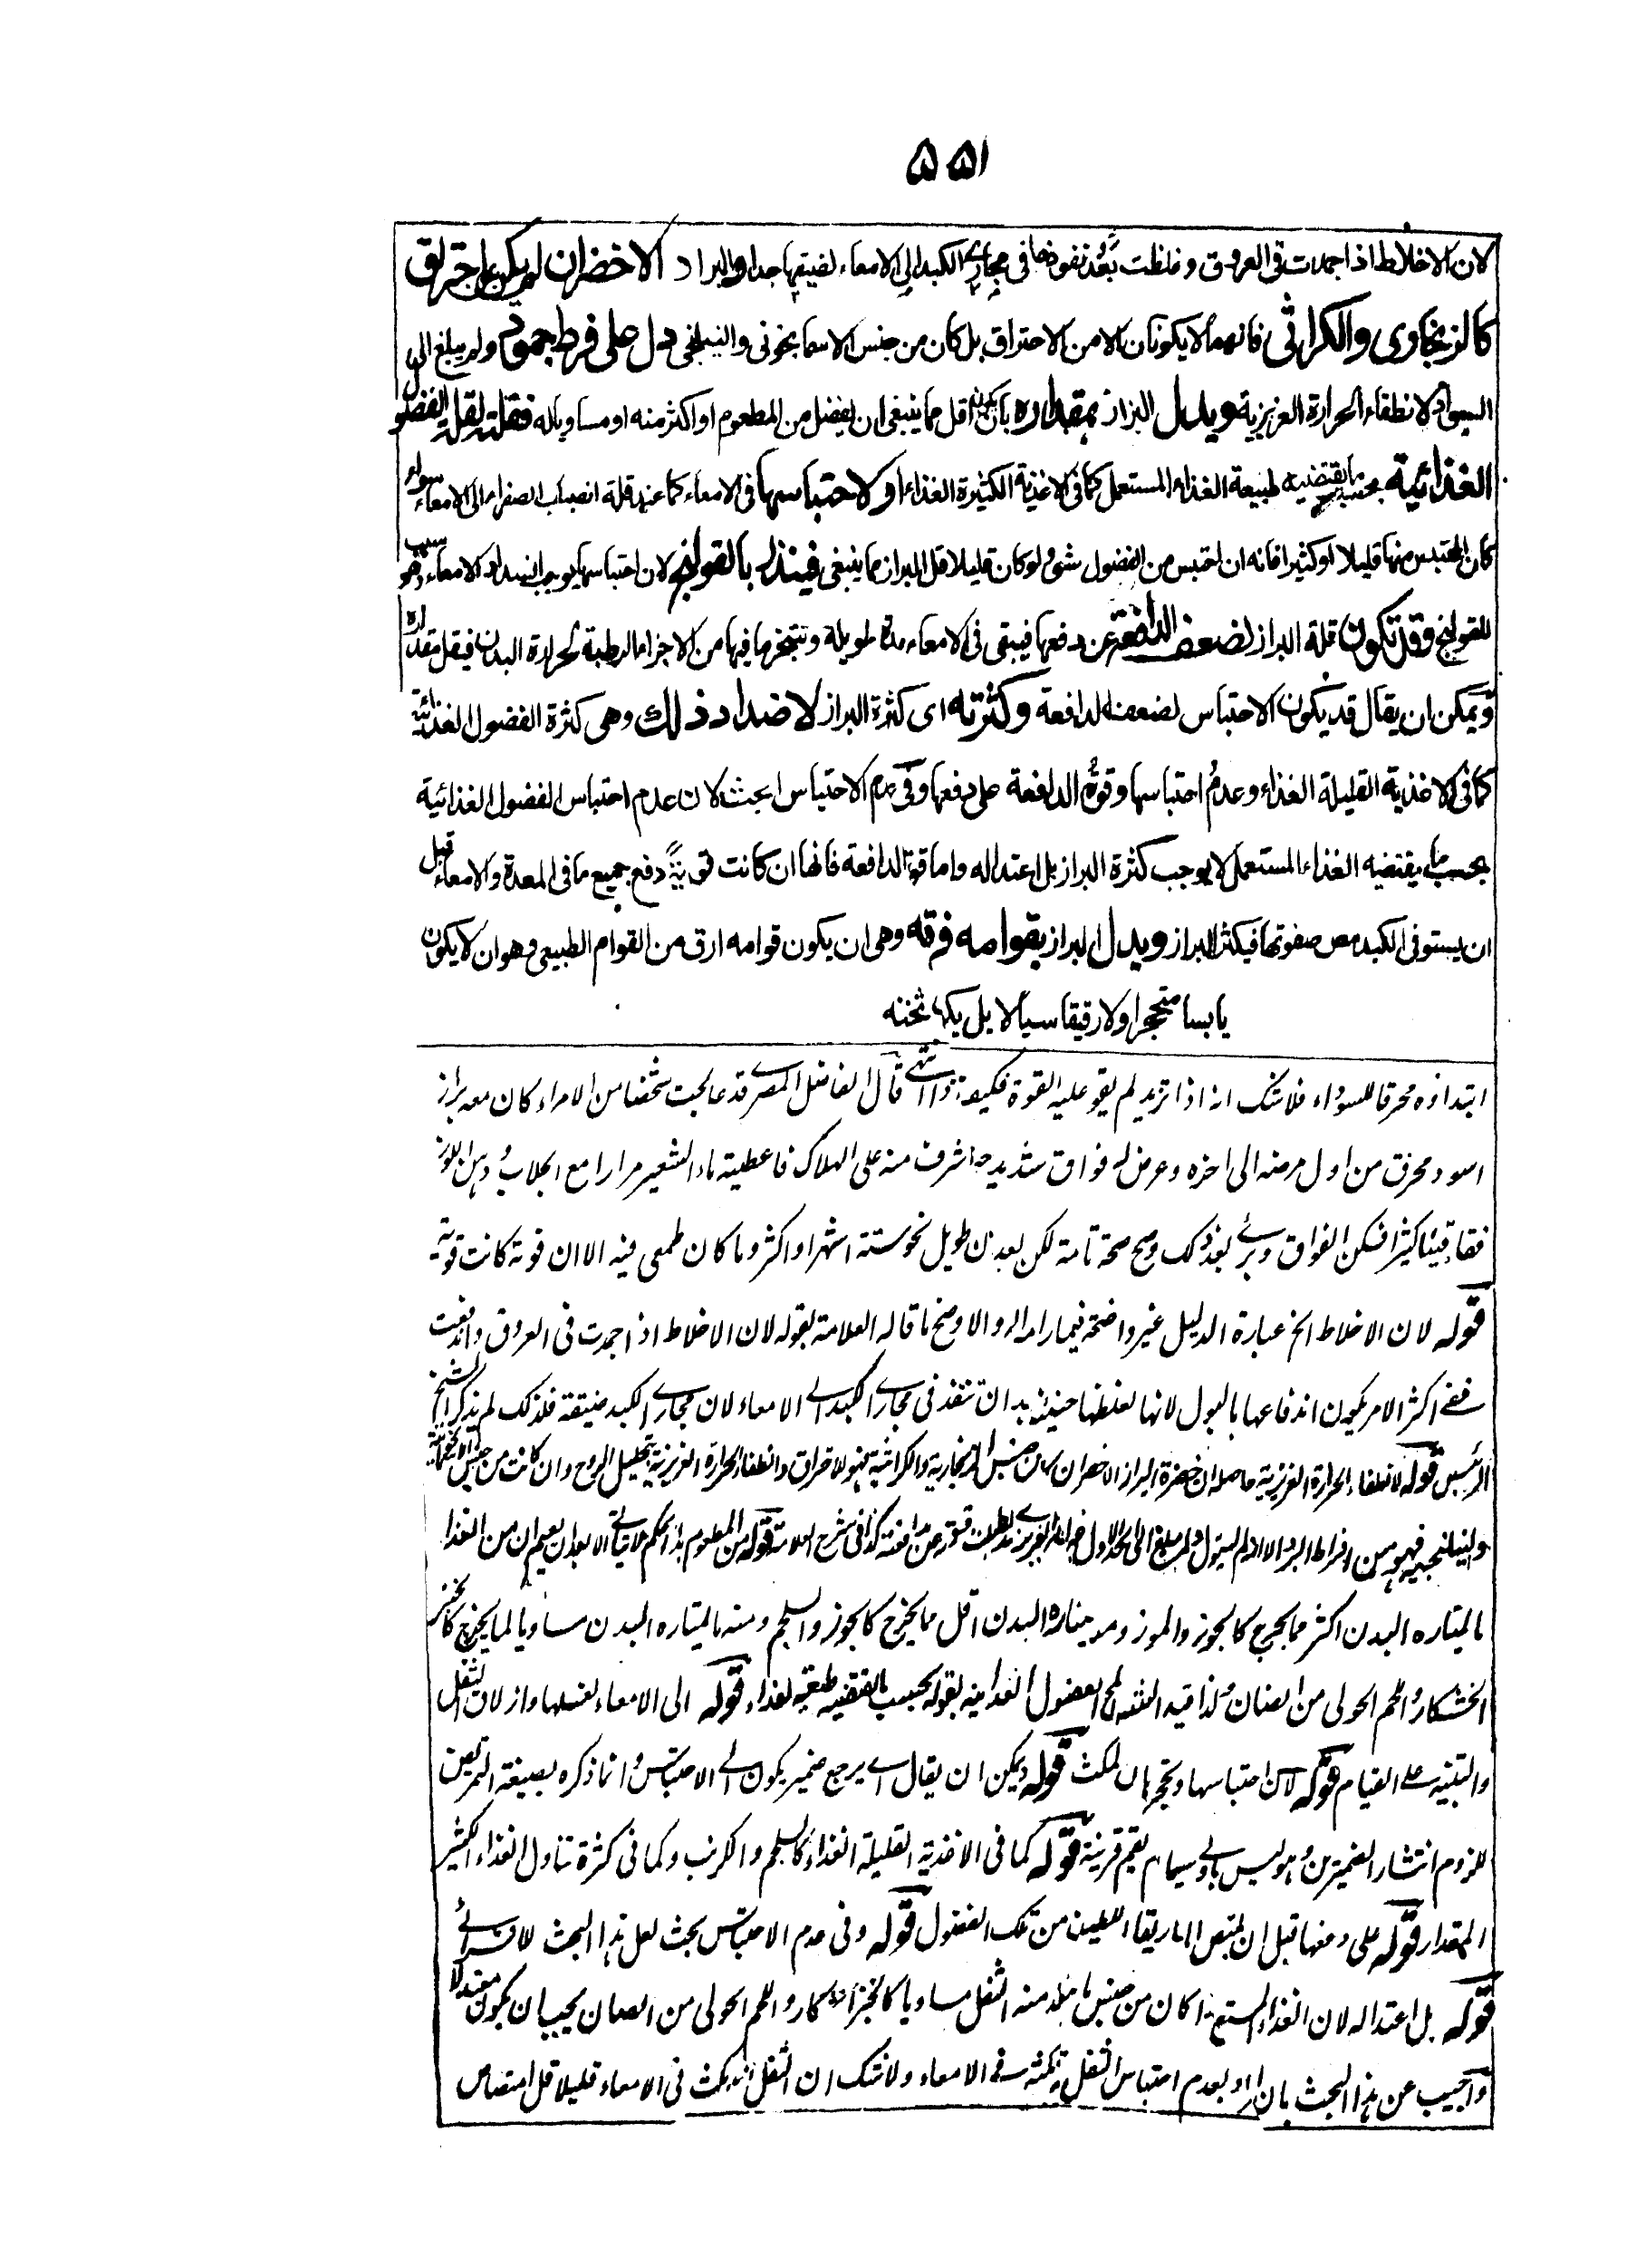 ٥٥١
لان الاخلاط اذا جمدت فى العروق وغلظت بعُد نفوذها فى مجارى الكبد الى الامعاء لضيقها جدا والبراز الاخضر ان لم يكن باحتراق
كالزنجارى والكراثى فانهما لا يكونان الا من الاحتراق بل كان من جنس الاسمانجونى والنيلنجى دل على فرط جمود ولم يبلغ الى
السواد لانطفاء الحرارة الغريزية ويدل البراز بمقداره بان يكون اقل مما ينبغى ان يفضل من المطعوم او اكثر منه او مساويا له فقلته لقلة الفضول
الغذائية بحسب ما يقتضيه طبيعة الغذاء المستعمل كما فى الاغذية الكثيرة الغذاء او لاحتباسها فى الامعاء كما عند قلة انصباب الصفراء الى الامعاء سواء
كان المحتبس منها قليلا او كثيرا فانه ان احتبس من الفضول شئ ولو كان قليلا قل البراز مما ينبغى فينذر بالقولنج لان احتباسها يوجب انسداد الامعاء وهو سبب
للقولنج وقد تكون قلة البراز لضعف الدافعة عن دفعها فيبقى فى الامعاء مدة طويلة وتتبخر ما فيها من الاجزاء الرطبة لحرارة البدن فيقل مقداره
ويمكن ان يقال قد يكون الاحتباس لضعف الدافعة وكثرته اى كثرة البراز لاضداد ذلك وهى كثرة الفضول الغذائية
كما فى الاغذية القليلة الغذاء وعدم احتباسها وقوة الدافعة على دفعها وفى عدم الاحتباس بحث لان عدم احتباس الفضول الغذائية
بحسب ما يقتضيه الغذاء المستعمل لا يوجب كثرة البراز بل اعتداله واما قوة الدافعة فانها ان كانت قوية دفع جميع ما فى المعدة والامعاء قبل
ان يستوفى الكبد مص صفوتها فيكثر البراز ويدل البراز بقوامه فرقته وهى ان يكون قوامه ارق من القوام الطبيعى وهو ان لا يكون
يابسا متحجرا ولا رقيقا سيالا بل يكون ثخنه
ابتداؤه محرقا للسوداء فلا شك انه اذا تزيد لم يقو عليه القوة فكيف اذا انتهى قال الفاضل المصرى قد عالجت شخصا من الامراء كان معه براز
اسود محرق من اول مرضه الى اخره وعرض له فواق شديد حتى اشرف منه على الهلاك فاعطيته ماء الشعير مرارا مع الجلاب ودهن اللوز
فقاء قيئا كثيرا فسكن الفواق وبرئ بعد ذلك وصح صحة تامة لكن بعد زمن طويل نحو ستة اشهر او اكثر وما كان طمعى فيه الا ان قوته كانت قوية
قوله لان الاخلاط الخ عبارة الدليل غير واضحة فيما رامه والاوضح ما قاله العلامة بقوله لان الاخلاط اذا جمدت فى العروق واندفعت
ففى اكثر الامر يكون اندفاعها بالبول لانها لغلظها حينئذ بعد ان تنفذ فى مجارى الكبد الى الامعاء لان مجارى الكبد ضيقة فلذلك لم يذكر الشيخ
الرئيس قوله لانطفاء الحرارة الغريزية حاصله ان خضرة البراز الاخضر ان كان من جنس الزنجارية والكراثية فهو للاحتراق وانطفاء الحرارة الغريزية بتحليل الروح وان كانت من جنس
والنيلنجية فهو من افراط البرد قوله من المطعوم هذا الحكم لا يتأتى الا بعد ان يعلم ان من الغذاء
ما يمتاره البدن اكثر مما يخرج كالجوز والموز ومنه ما يمتاره البدن اقل مما يخرج كالجوز والسلجم ومنه ما يمتاره البدن مساويا لما يخرج كالخبز
الخشكار واللحم الحولى من الضان ولذا قيد الفضول الغذائية بقوله بحسب ما يقتضيه طبيعة الغذاء قوله الى الامعاء لغسلها وازلاق الثفل
والتنبيه على القيام قوله لان احتباسها وتحجرها لمكث قوله ويمكن ان يقال اى يرجع ضمير يكون الى الاحتباس وانما ذكره بصيغة التمريض
للزوم انتشار الضميرين وهو ليس باولى سيما لم يقم قرينة قوله كما فى الاغذية القليلة الغذاء كالسلجم والكرنب وكما فى كثرة تناول الغذاء الكثير
المقدار قوله على دفعها قبل ان يمتص الماساريقا اللطيف من تلك الفضول قوله وفى عدم الاحتباس بحث لعل هذا البحث للاقسرائى
قوله بل اعتداله لان الغذاء المستعمل اذا كان من جنس ما يتولد منه الثفل مساويا كالخبز الخشكار واللحم الحولى من الضان يجب ان يكون معتدلا
واجيب عن هذا البحث بان المراد بعدم احتباس الثفل قلة مكثه فى الامعاء ولا شك ان الثفل اذا مكث فى الامعاء قليلا قل امتصاص